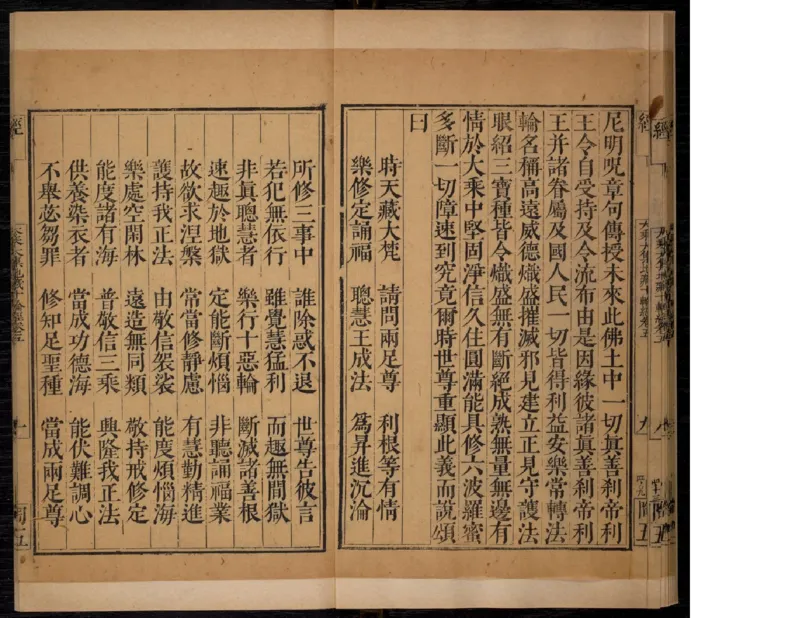 尼明呪章句傳授未來此佛土中一切眞善刹帝利
王令自受持及令流布由是因緣彼諸眞善刹帝利
王并諸眷屬及國人民一切皆得利益安樂常轉法
輪名稱高遠威德熾盛摧滅邪見建立正見守護法
眼紹三寶種皆令熾盛無有斷絕成熟無量無邊有
情於大乘中堅固淨信久住圓滿能具修六波羅蜜
多斷一切障速到究竟爾時世尊重顯此義而說頌
曰
時天藏大梵 請問兩足尊 利根等有情
樂修定誦福 聰慧王成法 爲昇進沉淪
所修三事中 誰除惑不退 世尊告彼言
若犯無依行 雖覺慧猛利 而趣無間獄
非眞聰慧者 樂行十惡輪 斷滅諸善根
速趣於地獄 定能斷煩惱 非聽誦福業
故欲求涅槃 常當修靜慮 有慧勤精進
護持我正法 由敬信袈裟 能度煩惱海
樂處空閑林 遠造無同類 敬持戒修定
能度諸有海 普敬信三乘 興隆我正法
供養染衣者 當成功德海 能伏難調心
不舉苾芻罪 修知足聖種 當成兩足尊